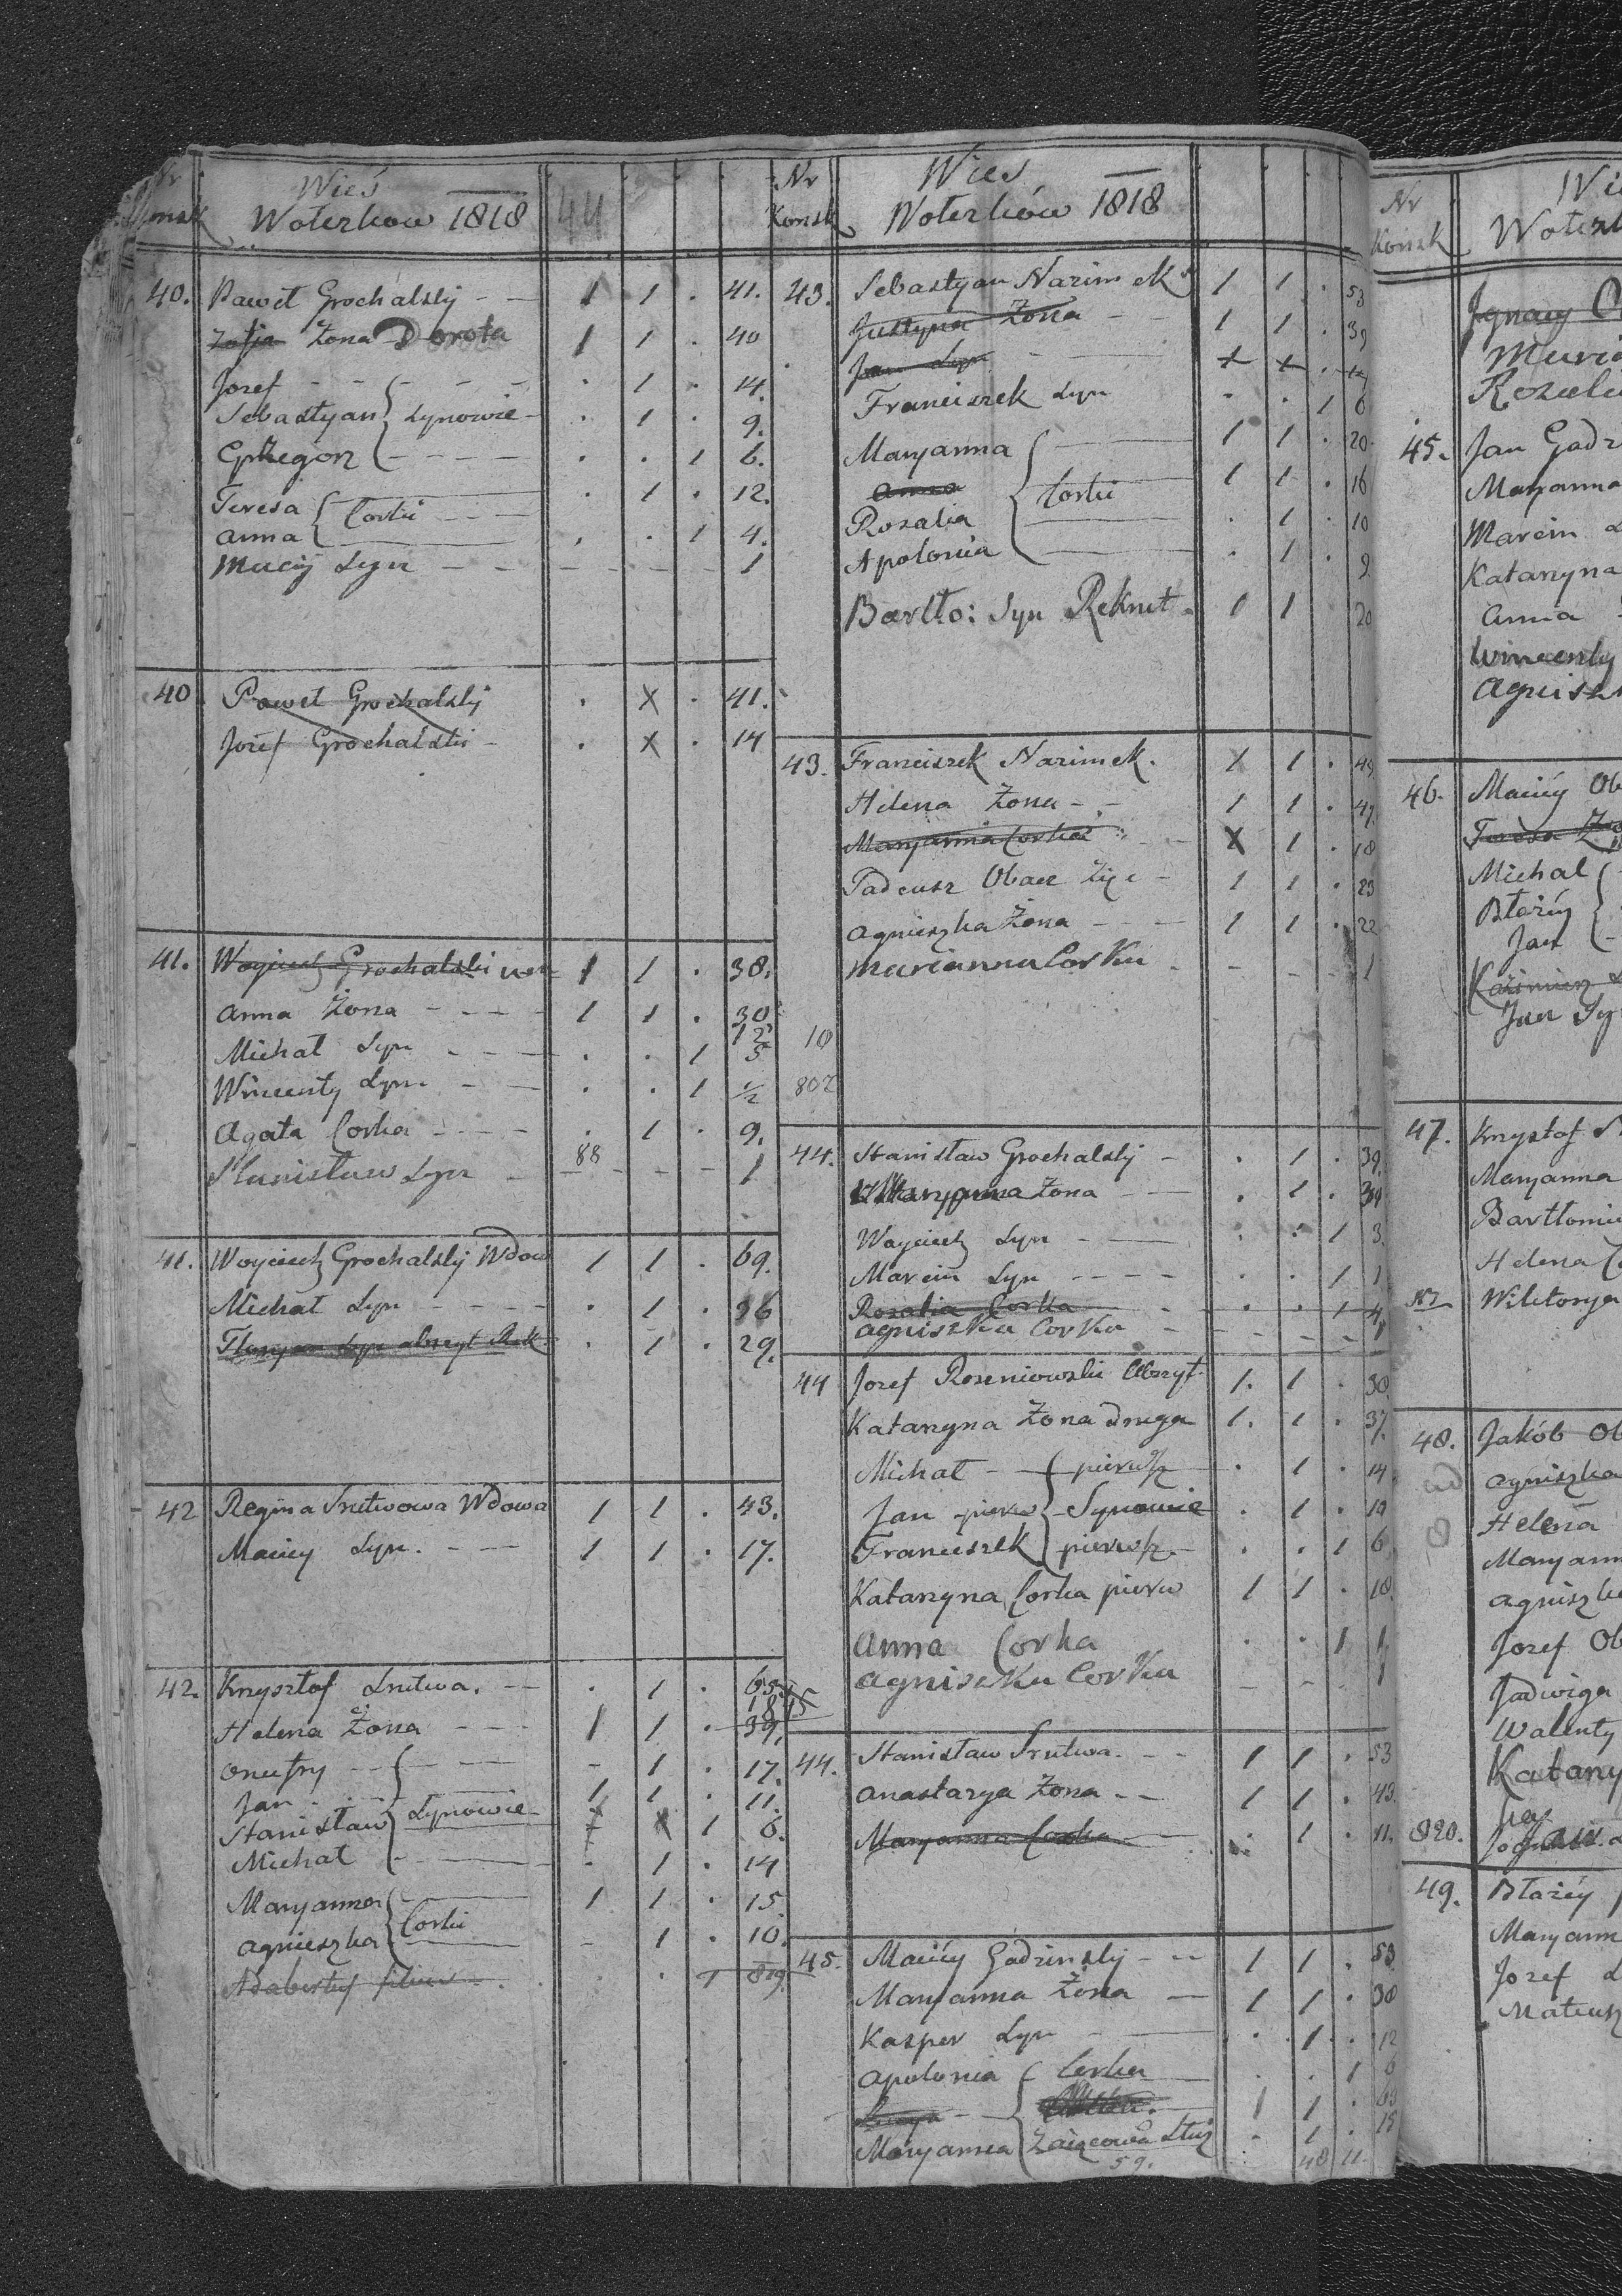 Wieś
Woterkow 1818 44
40. Paweł Grochalsky - - 1 1 . 41.
Zofia Żona Dorota 1 1 . 40
Jozef - - - . 1 . 14.
Sebastyan Synowie . 1 . 9.
Grzegorz - - - . . 1 6.
Teresa Corki . 1 . 12.
Anna . . 1 4.
Maciy Syn - - - 1
40 Paweł Grochalsky . X . 41.
Jozef Grochalski . X . 14
41. Woyciech Grochalski 1 1 . 38.
Anna Żona - - - 1 1 . 30
Michał Syn . . 1 5
Wincenty Syn . . 1 1/2
Agata Corka . 1 . 9.
Stanisław Syn 88 - - - 1
41. Woyciech Grochalsky Wdow 1 1 . 69.
Michał Syn - - - . 1 . 36
Floryan Syn abszyt Rek . 1 . 29.
42 Regina Srutwowa Wdowa 1 1 . 43.
Maciey Syn. - - 1 1 . 17.
42. Krzysztof Srutwa. - - . 1 . 65
Helena Żona - - - 1 1 . 39.
Onufry - 1 . 17.
Jan 1 1 . 11.
Stanisław Synowie X X 1 8.
Michał . 1 . 14
Maryanna 1 1 . 15.
Agnieszka Corki - 1 . 10.
Adabertus filius . . 1 819.
Nr
Konsk
Wies
Woterków 1818
43. Sebastyan Nazimek 1 1 . 53
Justyna Żona - - 1 1 . 39
Jan Syn
Franciszek Syn . . 1 6
Maryanna 1 1 . 20
Anna 1 1 . 16
Rozalia Corki . 1 . 10
Apolonia . 1 . 9
Bartło: Syn Rekrut 1 1 20
43. Franciszek Nazimek. X 1 . 49.
Helena Żona - - 1 1 . 47.
Maryanna Corka X 1 . 18
Tadeusz Obacz Zięc - 1 1 . 23
Agnieszka Żona - - 1 1 . 22
Marianna Corka - - - 1
10
802
44. Stanisław Grochalsky - . 1 . 39.
Maryanna Żona - - . 1 . 34
Woyciech Syn - - . . 1 3
Marcin Syn - - - . . 1 1
Rozalia Corka . . 1 4
Agniszka Corka - - - -
44 Jozef Rozeniowski Abszyt 1. 1 . 38.
Katarzyna Żona druga 1. 1 . 37.
Michał - pierwsz . 1 . 14
Jan pierw Synowie . 1 . 10
Franciszek pierwsz. . . 1 6
Katarzyna Corka pierw 1 1 . 18.
Anna Corka . . 1 1
Agniszka Corka - - - 1
44. Stanisław Srutwa. - - 1 1 . 53
Anastazya Żona - - 1 1 . 43
Maryanna Corka . 1 . 11.
45. Maciey Gadzinsky - - 1 1 . 53
Maryanna Żona - 1 1 . 38
Kasper Syn . 1 . 12
Apolonia Corka . . 1 6
Maryanna Służ . 1 . 15
59. 48 11.
Nr
Konsk
Ignacy
Rozalia
45. Jan Gadz
Maryanna
Marcin
Katarzyna
Anna
Wincenty
46. Maciey Ob
Teresa
Michał
Błażey
Jan
Kazimierz
Jan Sy
47. Krzysztof
Maryanna
Bartłomi
Helena
Wiktorya
48. Jakób Ob
Agniszka
Helena
Maryann
Agniszka
Jozef Ob
Jadwiga
Walenty
Katarzy
820.
49. Błażey
Maryann
Jozef
Mateusz